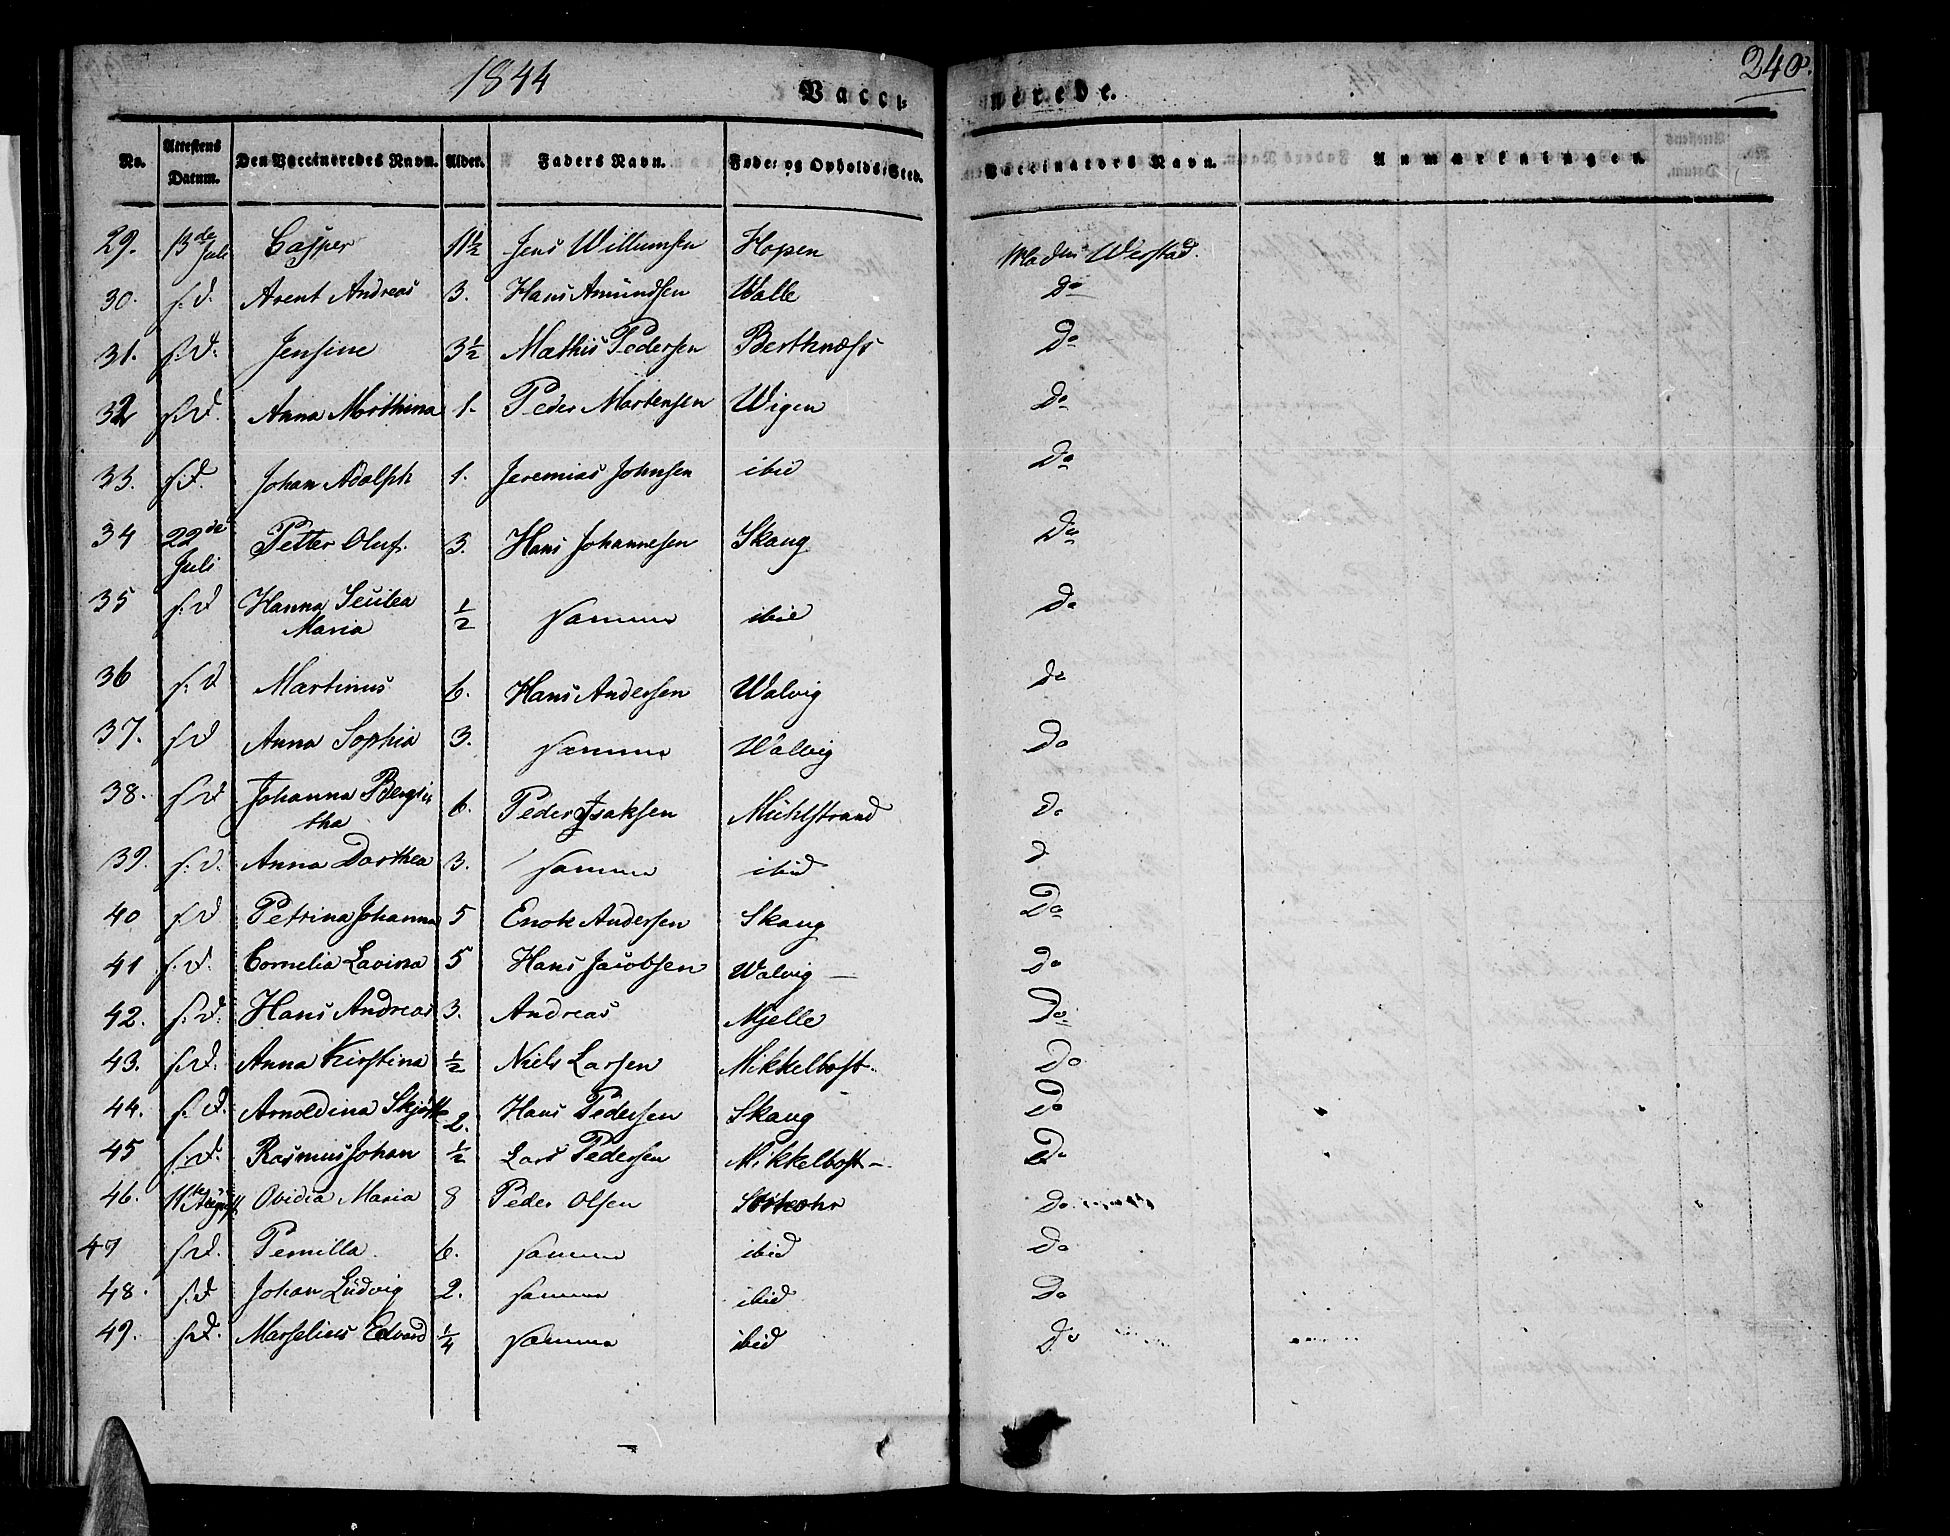 1844 Vacci- nerede. 240.
No. Attestens Datum. Den Vaccineredes Navn. Alder. Faders Navn. Føde- og Opholds-Sted. Vaccinators Navn. Anmærkninger.
29. 13de Juli Casper 11½ Jens Willumsen Hopen Werstad.
30. s. d. Arent Andreas 3. Hans Amundsen Walle Do
31. s. d. Jensine 3½ Mathis Pedersen Berthnæss Do
32 s. d. Anna Morthina 1. Peder Mortensen Wigen Do
33. s. d. Johan Adolph 1. Jeremias Johnsen ibid Do
34 22de Juli Petter Oluf. 3. Hans Johannesen Skaug Do
35 s. d Hanna Maria ½ samme ibid do
36 s. d Martinus 6. Hans Andersen Walvig do
37. s d Anna Sophia 3. samme Walvig Do
38. s d Johanna Bergit-
tha 6. Peder Isaksen Mühlstrand Do
39. s. d. Anna Dorthea 3. samme ibid d
40 s. d Petrina Johanna 5 Enok Andersen Skaug Do
41 s. d. Cornelia Lavina 5 Hans Jacobsen Walvig — Do
42. s. d. Hans Andreas 3. Andreas Mjelle Do
43. s. d. Anna Kirstina ½ Niels Larsen Mikkelbost. Do
44. s. d. Arnoldina 2. Hans Pedersen Skaug Do
45 s. d. Rasmus Johan ½ Lars Pedersen Mikkelbost — Do
46. 11te August Ovidia Maria 8 Peder Olsen Do
47 s. d. Pernilla 6. samme ibid Do
48. s. d Johan Ludvig 2. samme ibid Do
49. s. d. Marselius Edvard ¼ samme ibid Do